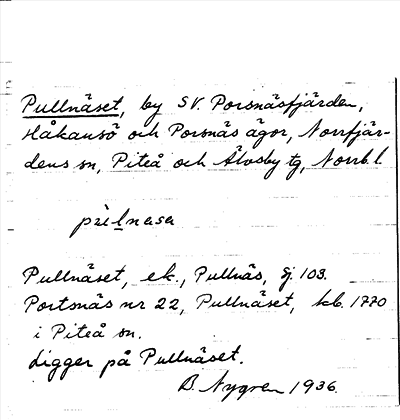 Pullnäset, by SV. Porsnäsfjärden,
Håkansö och Porsnäs ägor, Norrfjär-
dens sn, Piteå och Älvsby tg, Norrb. l
pìl̲nasa
Pullnäset, ek., Pullnäs, Sj 103.
Portsnäs nr 22, Pullnäset, kb. 1770
i Piteå sn.
Ligger på Pullnäset.
B. Nygren 1936.